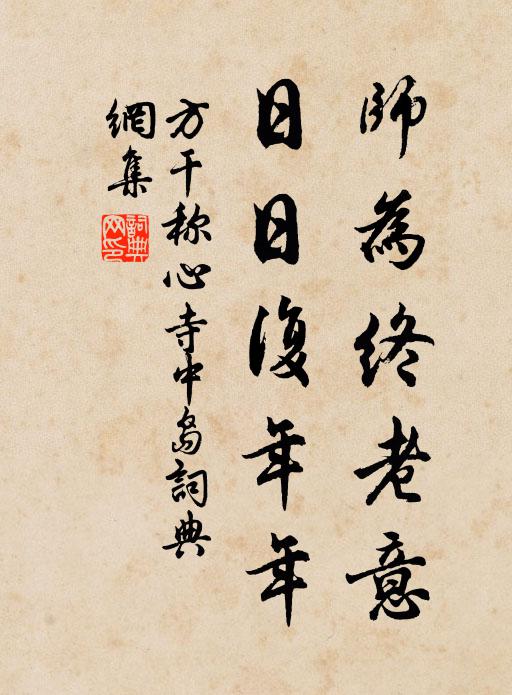 師為終老意
日日復年年
方干称心寺中岛詞典
網集
詞典
网印